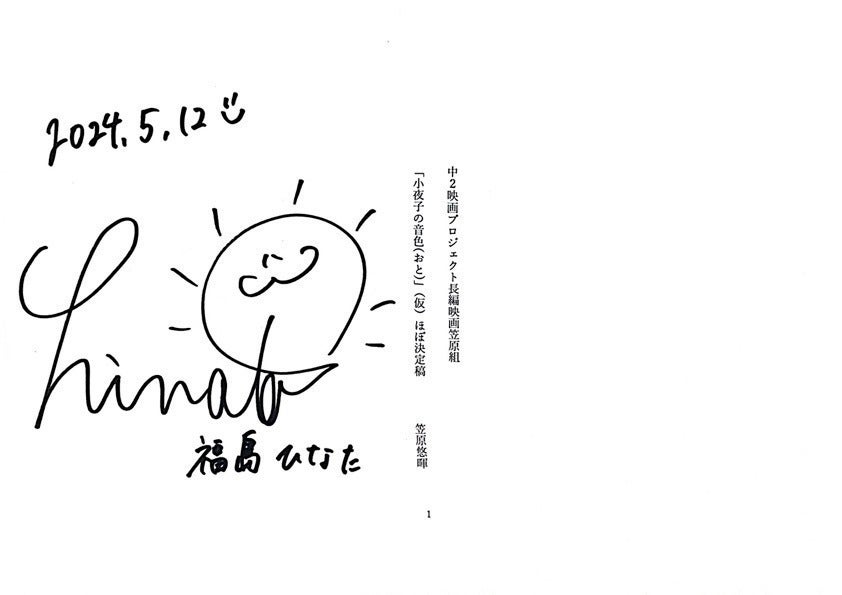 中2映画プロジェクト長編映画笠原組
「小夜子の音色(おと)」(仮) ほぼ決定稿 笠原悠暉
1
2024.5.12
hinata
福島ひなた